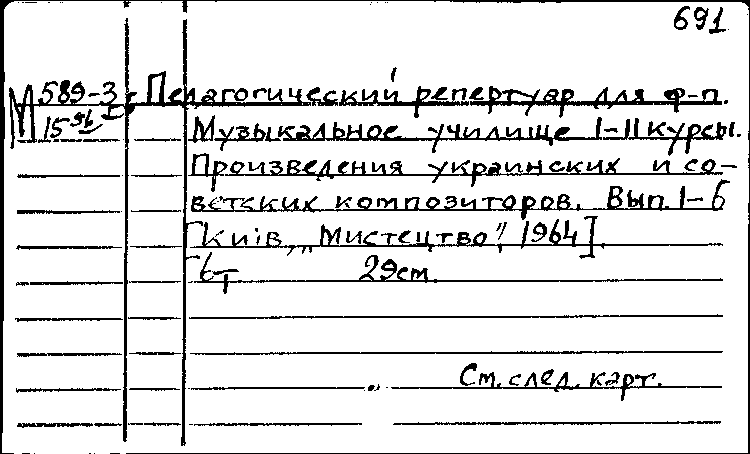 691
М 589-3 Педагогический репертуар для ф-п.
15 Музыкальное училище I-II курсы.
Произведения украинских и со-
ветских композиторов. Вып. 1-6
[Київ, „Мистецтво", 1964].
6т 29см.
См. след. карт.